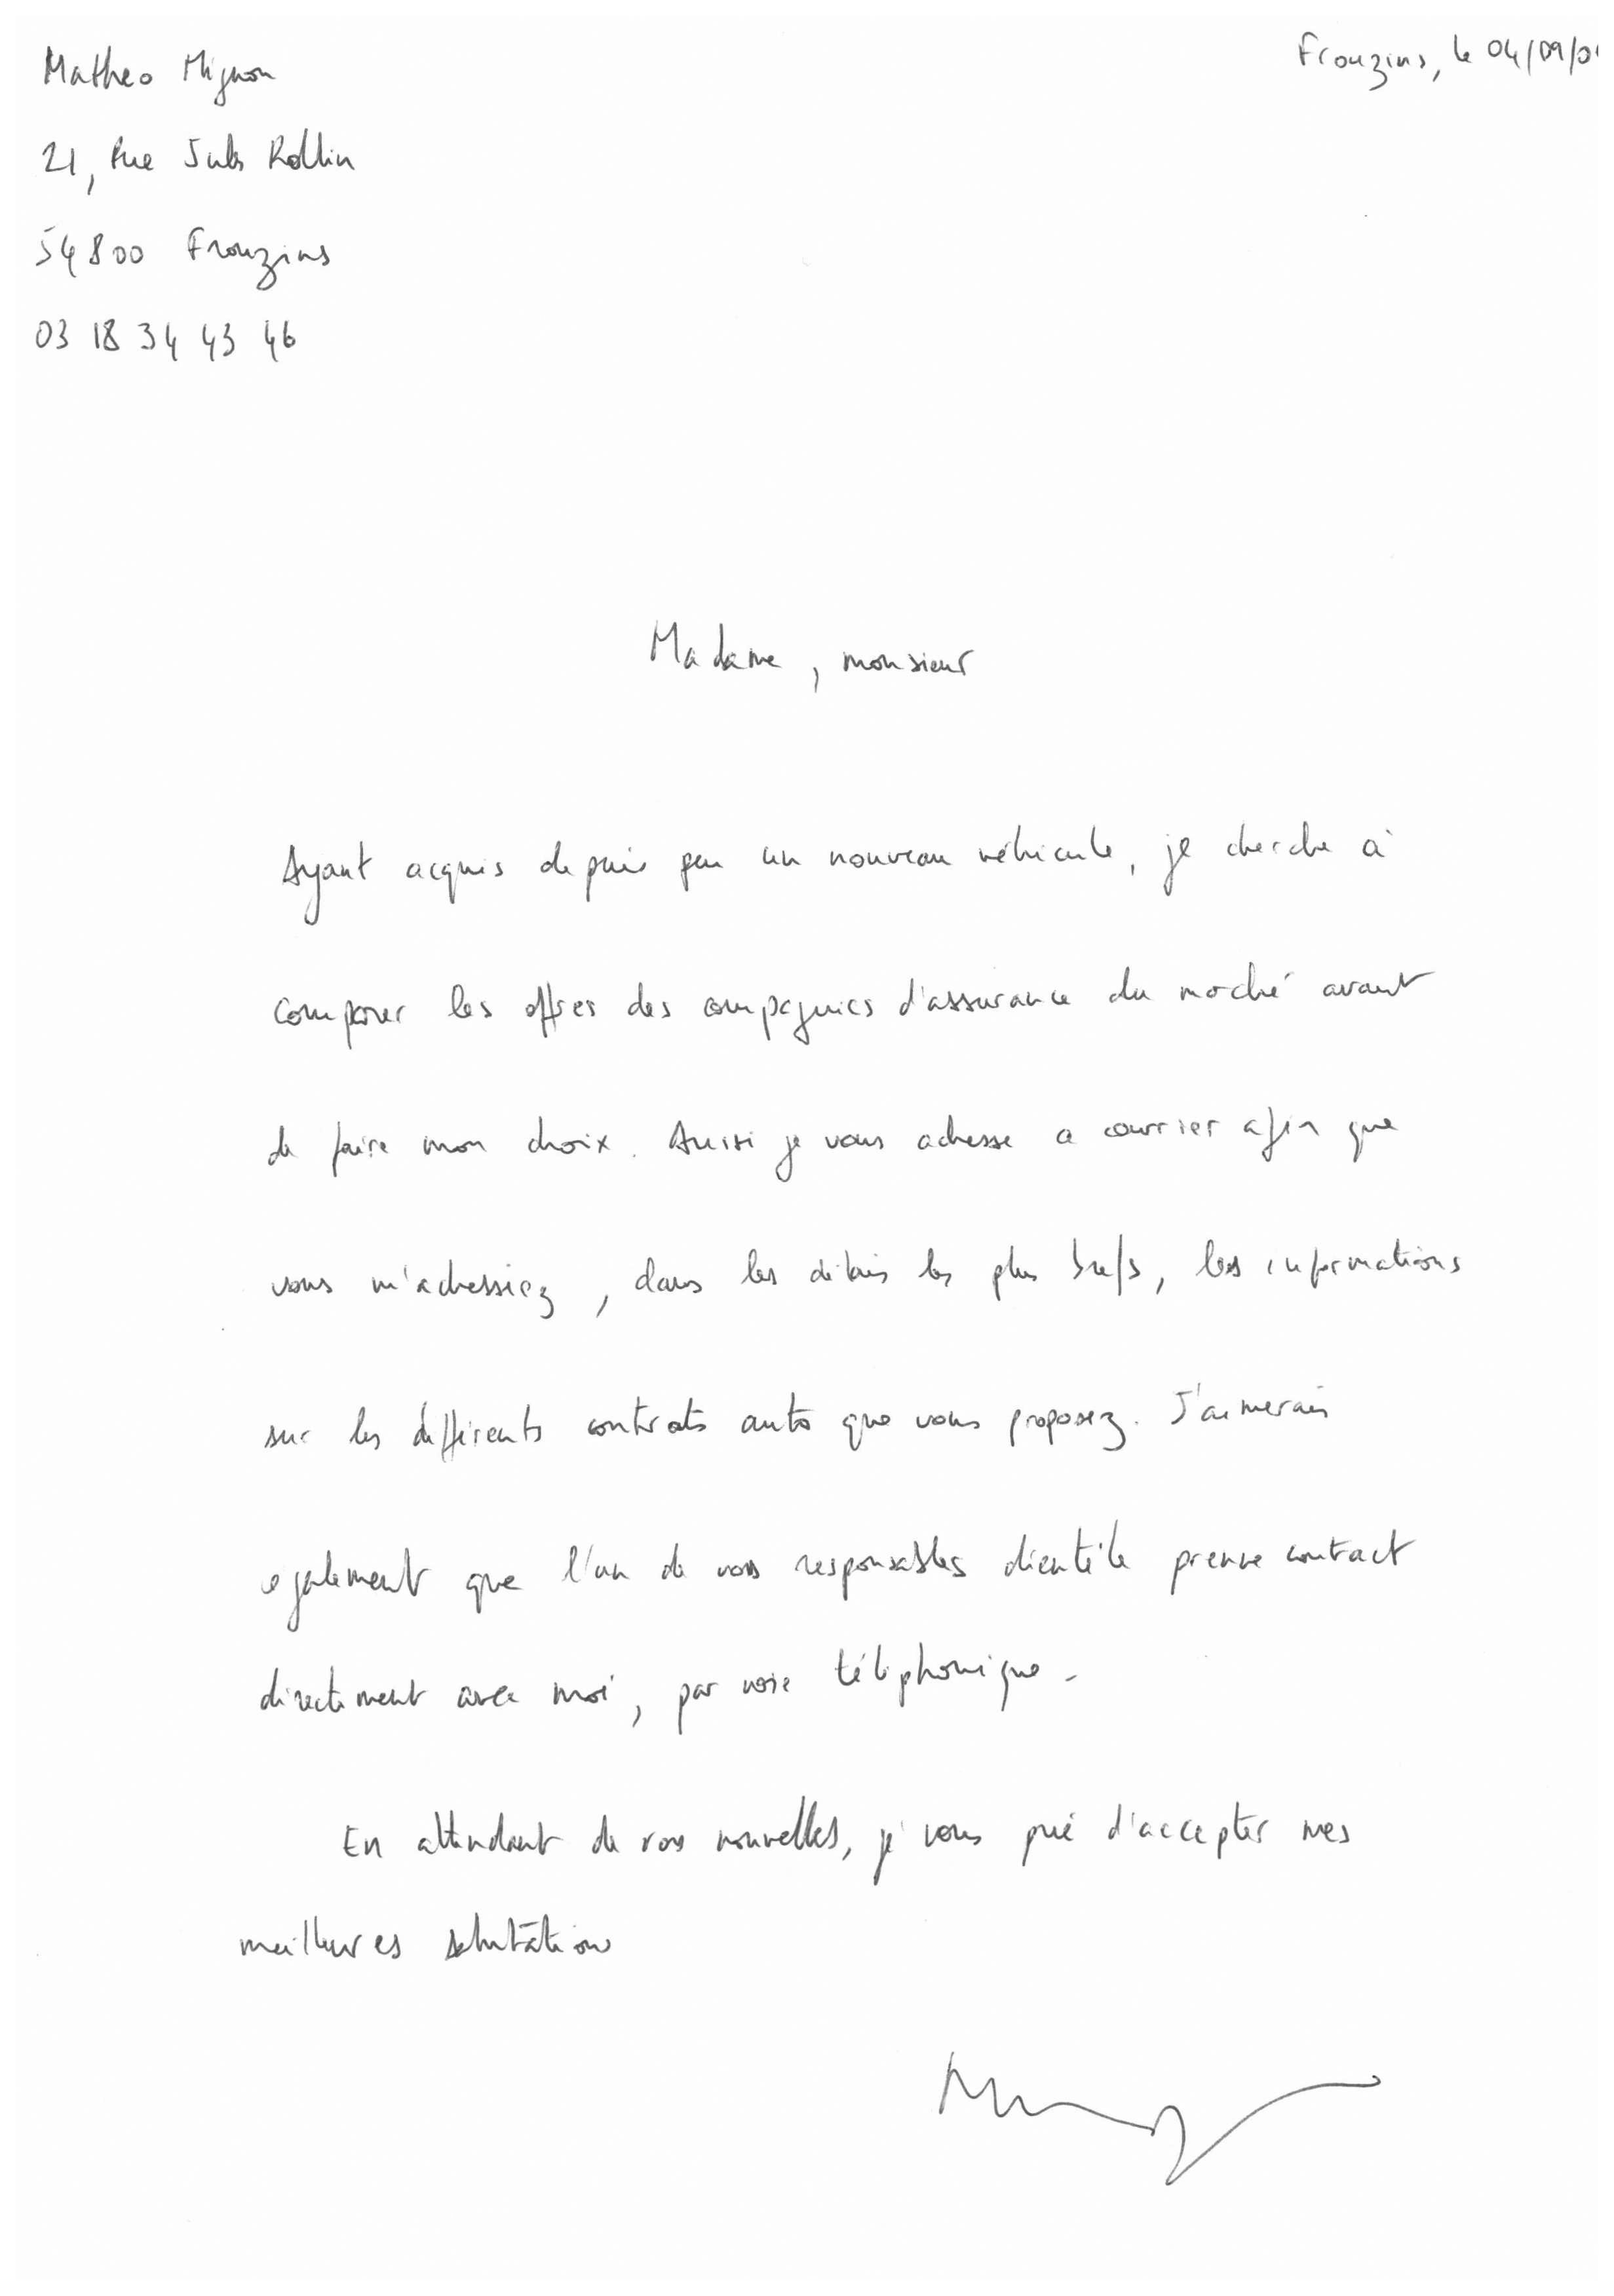 Matheo Mignon
Frouzins, le 04/09/0
21, Rue Jules Rollin
54800 Frouzins
03 18 34 43 46
Madame, monsieur
Ayant acquis depuis peu un nouveau véhicule, je cherche à
comparer les offres des compagnies d'assurance du marché avant
de faire mon choix. Aussi je vous adresse ce courrier afin que
vous m'adressiez, dans les délais les plus brefs, les informations
sur les différents contrats auto que vous proposez. J'aimerais
egalement que l'un de vos responsables clientèle prenne contact
directement avec moi, par voie téléphonique.
En attendant de vos nouvelles, je vous prie d'accepter mes
meilleures salutations